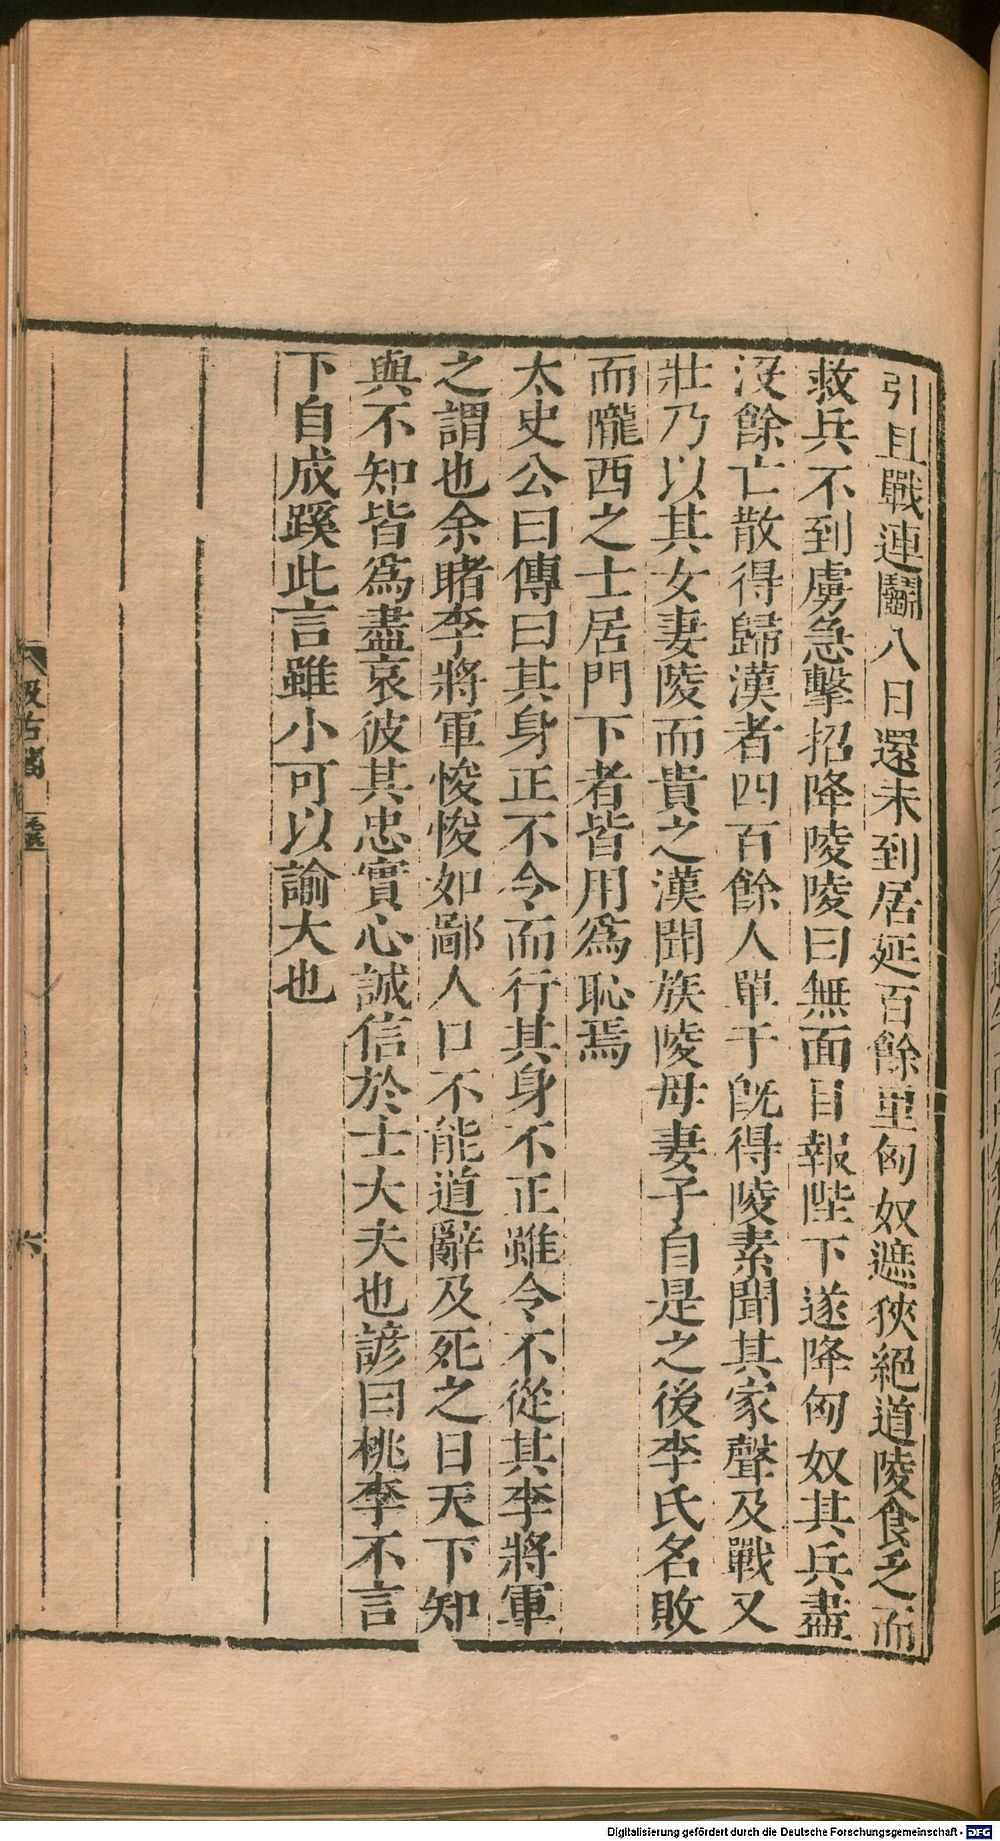 引且戰連鬬八日還未到居延百餘里匈奴遮狹絕道陵食乏而
救兵不到虜急擊招降陵陵曰無面目報陛下遂降匈奴其兵盡
沒餘亡散得歸漢者四百餘人單于旣得陵素聞其家聲及戰又
壯乃以其女妻陵而貴之漢聞族陵母妻子自是之後李氏名敗
而隴西之士居門下者皆用爲恥焉
太史公曰傳曰其身正不令而行其身不正雖令不從其李將軍
之謂也余睹李將軍悛悛如鄙人口不能道辭及死之日天下知
與不知皆爲盡哀彼其忠實心誠信於士大夫也諺曰桃李不言
下自成蹊此言雖小可以諭大也
六
Digitalisierung gefördert durch die Deutsche Forschungsgemeinschaft - DFG